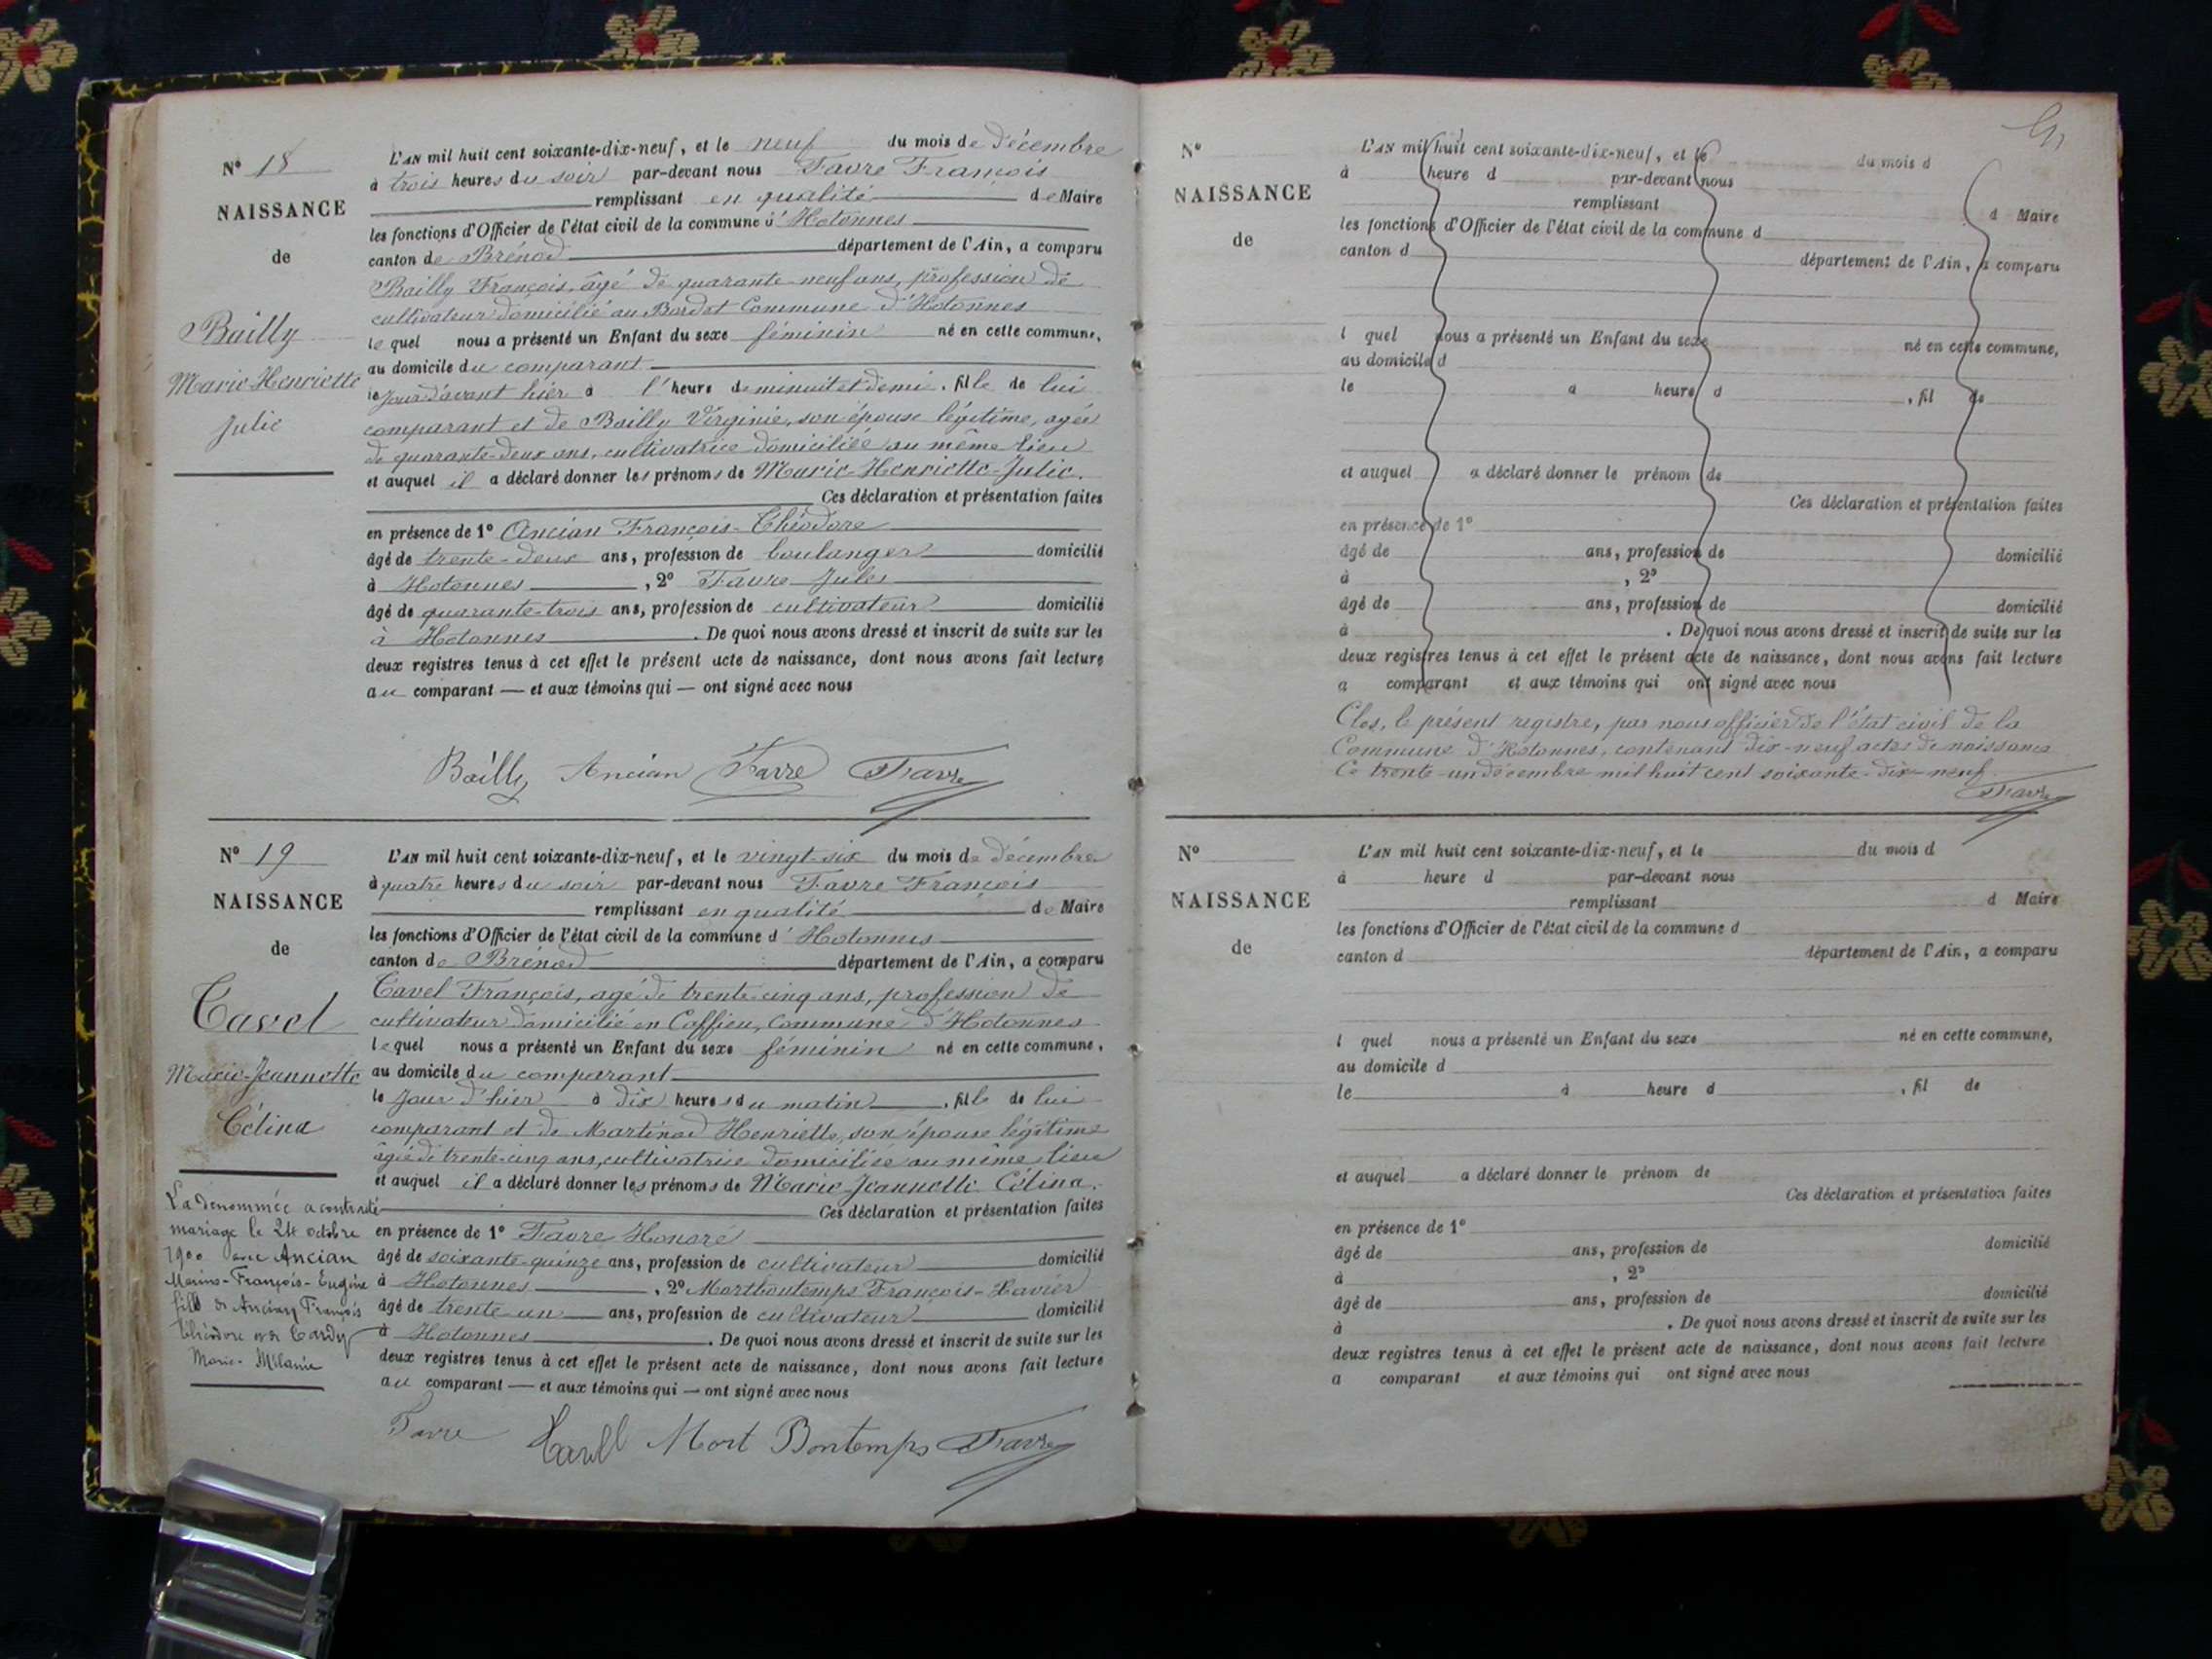 N° 18
NAISSANCE
de
Bailly
Marie-Henriette
Julie
L'AN mil huit cent soixante-dix-neuf, et le neuf du mois de Décembre
à trois heures du soir par-devant nous Favre François
remplissant en qualité de Maire
les fonctions d'Officier de l'état civil de la commune d'Hotonnes
canton de Brénod département de l'Ain, a comparu
Bailly François, âgé de quarante-neuf ans, profession de
cultivateur domicilié au Bordet Commune d'Hotonnes
lequel nous a présenté un Enfant du sexe féminin né en cette commune,
au domicile du comparant
le jour d'avant hier à l'heure de minuit et demi, fille de lui
comparant et de Bailly Virginie, son épouse légitime, agée
de quarante-deux ans, cultivatrice domiciliée au même lieu
et auquel il a déclaré donner les prénoms de Marie-Henriette-Julie.
Ces déclaration et présentation faites
en présence de 1° Ancian François-Théodore
âgé de trente-deux ans, profession de boulanger domicilié
à Hotonnes, 2° Favre Jules
âgé de quarante-trois ans, profession de cultivateur domicilié
à Hotonnes. De quoi nous avons dressé et inscrit de suite sur les
deux registres tenus à cet effet le présent acte de naissance, dont nous avons fait lecture
au comparant — et aux témoins qui — ont signé avec nous
Bailly Ancian Favre Favre
N° 19
NAISSANCE
de
Tavel
Marie-Jeannette
Célina
La dénommée a contracté
mariage le 24 octobre
1900 avec Ancian
Marius-François-Eugène
fils de Ancian François
Théodore et de Tardy
Marie-Mélanie
L'AN mil huit cent soixante-dix-neuf, et le vingt-six du mois de Décembre
à quatre heures du soir par-devant nous Favre François
remplissant en qualité de Maire
les fonctions d'Officier de l'état civil de la commune d'Hotonnes
canton de Brénod département de l'Ain, a comparu
Tavel François, agé de trente-cinq ans, profession de
cultivateur domicilié en Coffieu, Commune d'Hotonnes
lequel nous a présenté un Enfant du sexe féminin né en cette commune,
au domicile du comparant
le jour d'hier à dix heures du matin, fille de lui
comparant et de Martinod Henriette, son épouse légitime
âgée de trente-cinq ans, cultivatrice domiciliée au même lieu
et auquel il a déclaré donner les prénoms de Marie-Jeannette Célina.
Ces déclaration et présentation faites
en présence de 1° Favre Honoré
âgé de soixante-quinze ans, profession de cultivateur domicilié
à Hotonnes, 2° Mortbontemps François-Xavier
âgé de trente-un ans, profession de cultivateur domicilié
à Hotonnes. De quoi nous avons dressé et inscrit de suite sur les
deux registres tenus à cet effet le présent acte de naissance, dont nous avons fait lecture
au comparant — et aux témoins qui — ont signé avec nous
Favre Tavel Mort Bontemps Favre
N°
NAISSANCE
de
L'AN mil huit cent soixante-dix-neuf, et le du mois d
à heure d par-devant nous
remplissant d Maire
les fonctions d'Officier de l'état civil de la commune d
canton d département de l'Ain, a comparu
l quel nous a présenté un Enfant du sexe né en cette commune,
au domicile d
le à heure d , fil de
et auquel a déclaré donner le prénom de
Ces déclaration et présentation faites
en présence de 1°
âgé de ans, profession de domicilié
à , 2°
âgé de ans, profession de domicilié
à . De quoi nous avons dressé et inscrit de suite sur les
deux registres tenus à cet effet le présent acte de naissance, dont nous avons fait lecture
a comparant et aux témoins qui ont signé avec nous
Clos, le présent registre, par nous officier de l'état civil de la
Commune d'Hotonnes, contenant dix-neuf actes de naissance
Ce trente-un décembre mil huit cent soixante-dix-neuf
Favre
N°
NAISSANCE
de
L'AN mil huit cent soixante-dix-neuf, et le du mois d
à heure d par-devant nous
remplissant d Maire
les fonctions d'Officier de l'état civil de la commune d
canton d département de l'Ain, a comparu
l quel nous a présenté un Enfant du sexe né en cette commune,
au domicile d
le à heure d , fil de
et auquel a déclaré donner le prénom de
Ces déclaration et présentation faites
en présence de 1°
âgé de ans, profession de domicilié
à , 2°
âgé de ans, profession de domicilié
à . De quoi nous avons dressé et inscrit de suite sur les
deux registres tenus à cet effet le présent acte de naissance, dont nous avons fait lecture
a comparant et aux témoins qui ont signé avec nous